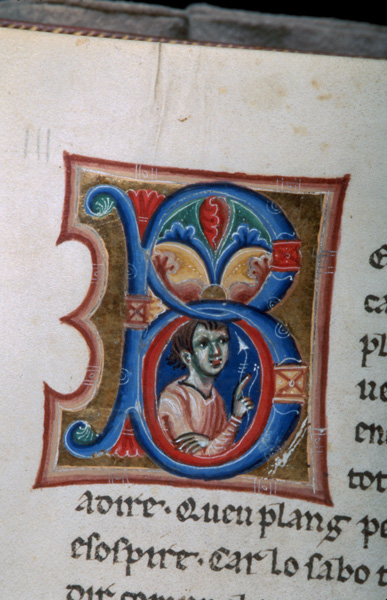 III
B
ca
pl
ue
en
tot
adire· Queu plang pe
esospire· Car lo sabo